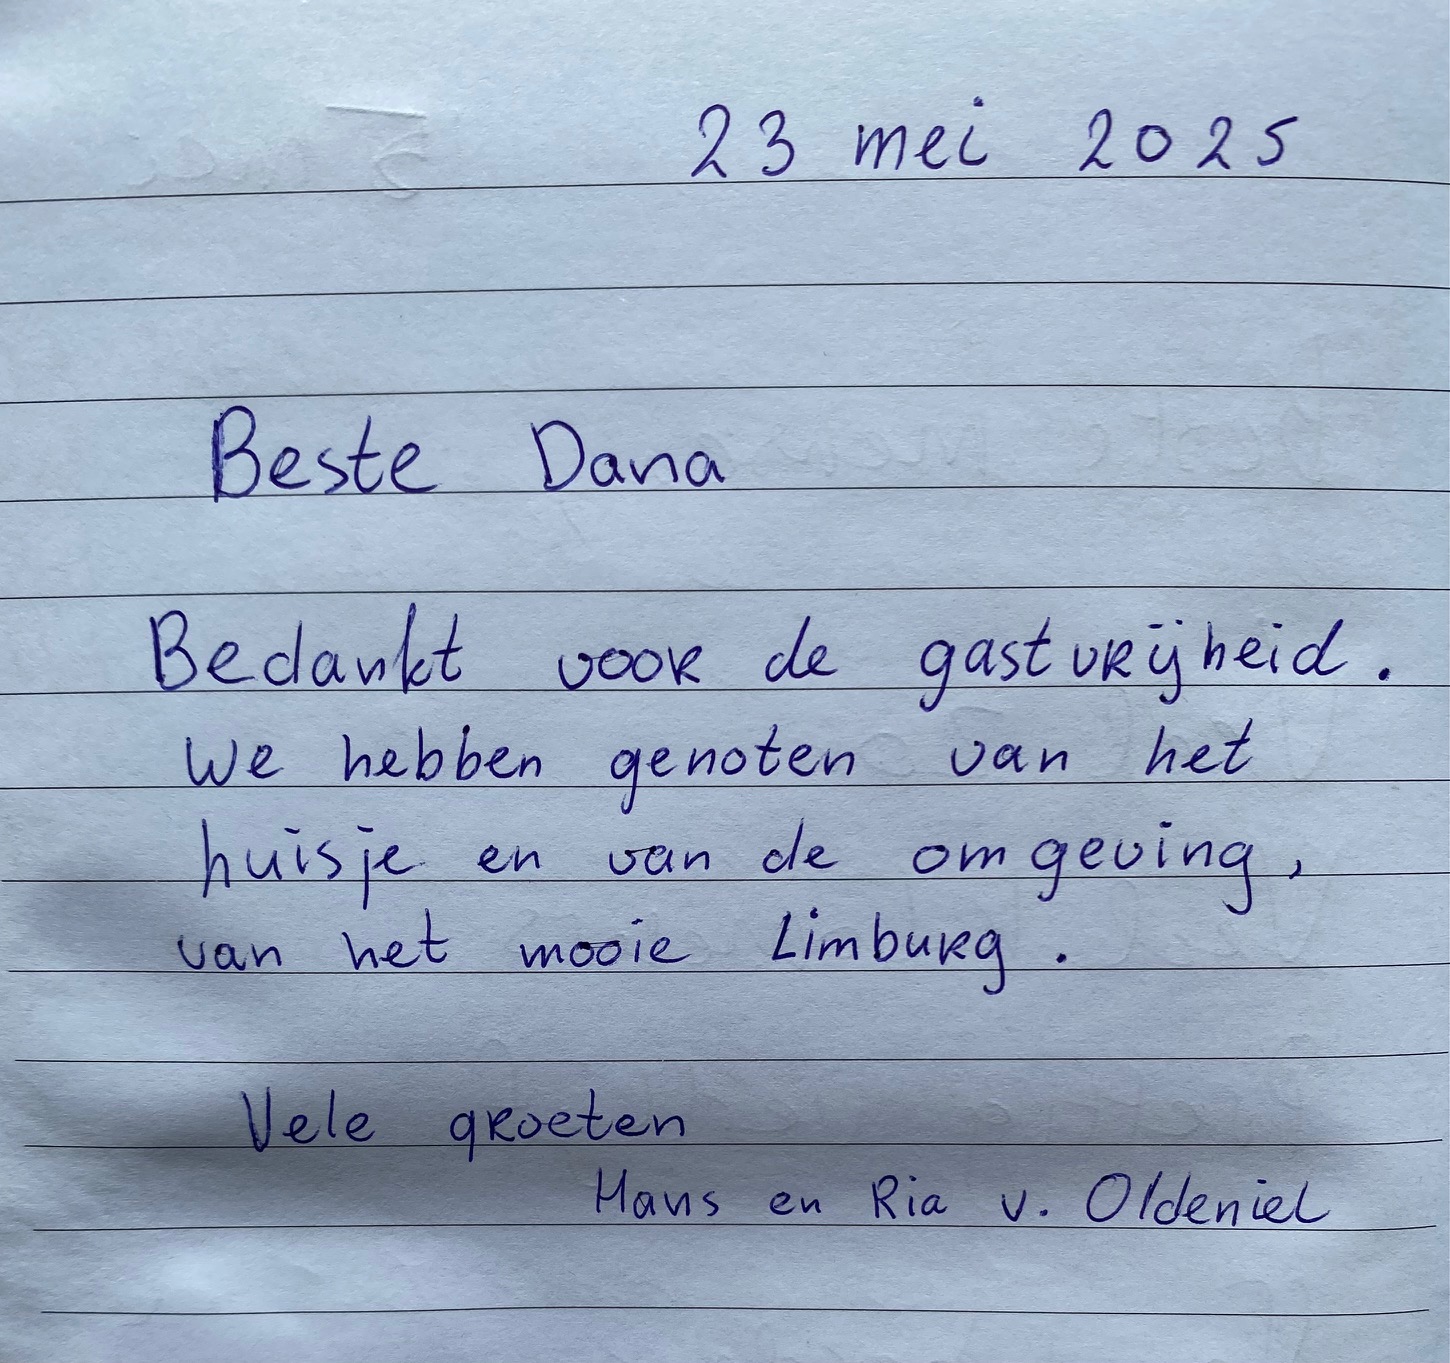 23 mei 2025
Beste Dana
Bedankt voor de gastvrijheid.
We hebben genoten van het
huisje en van de omgeving,
van het mooie Limburg.
Vele groeten
Hans en Ria v. Oldeniel